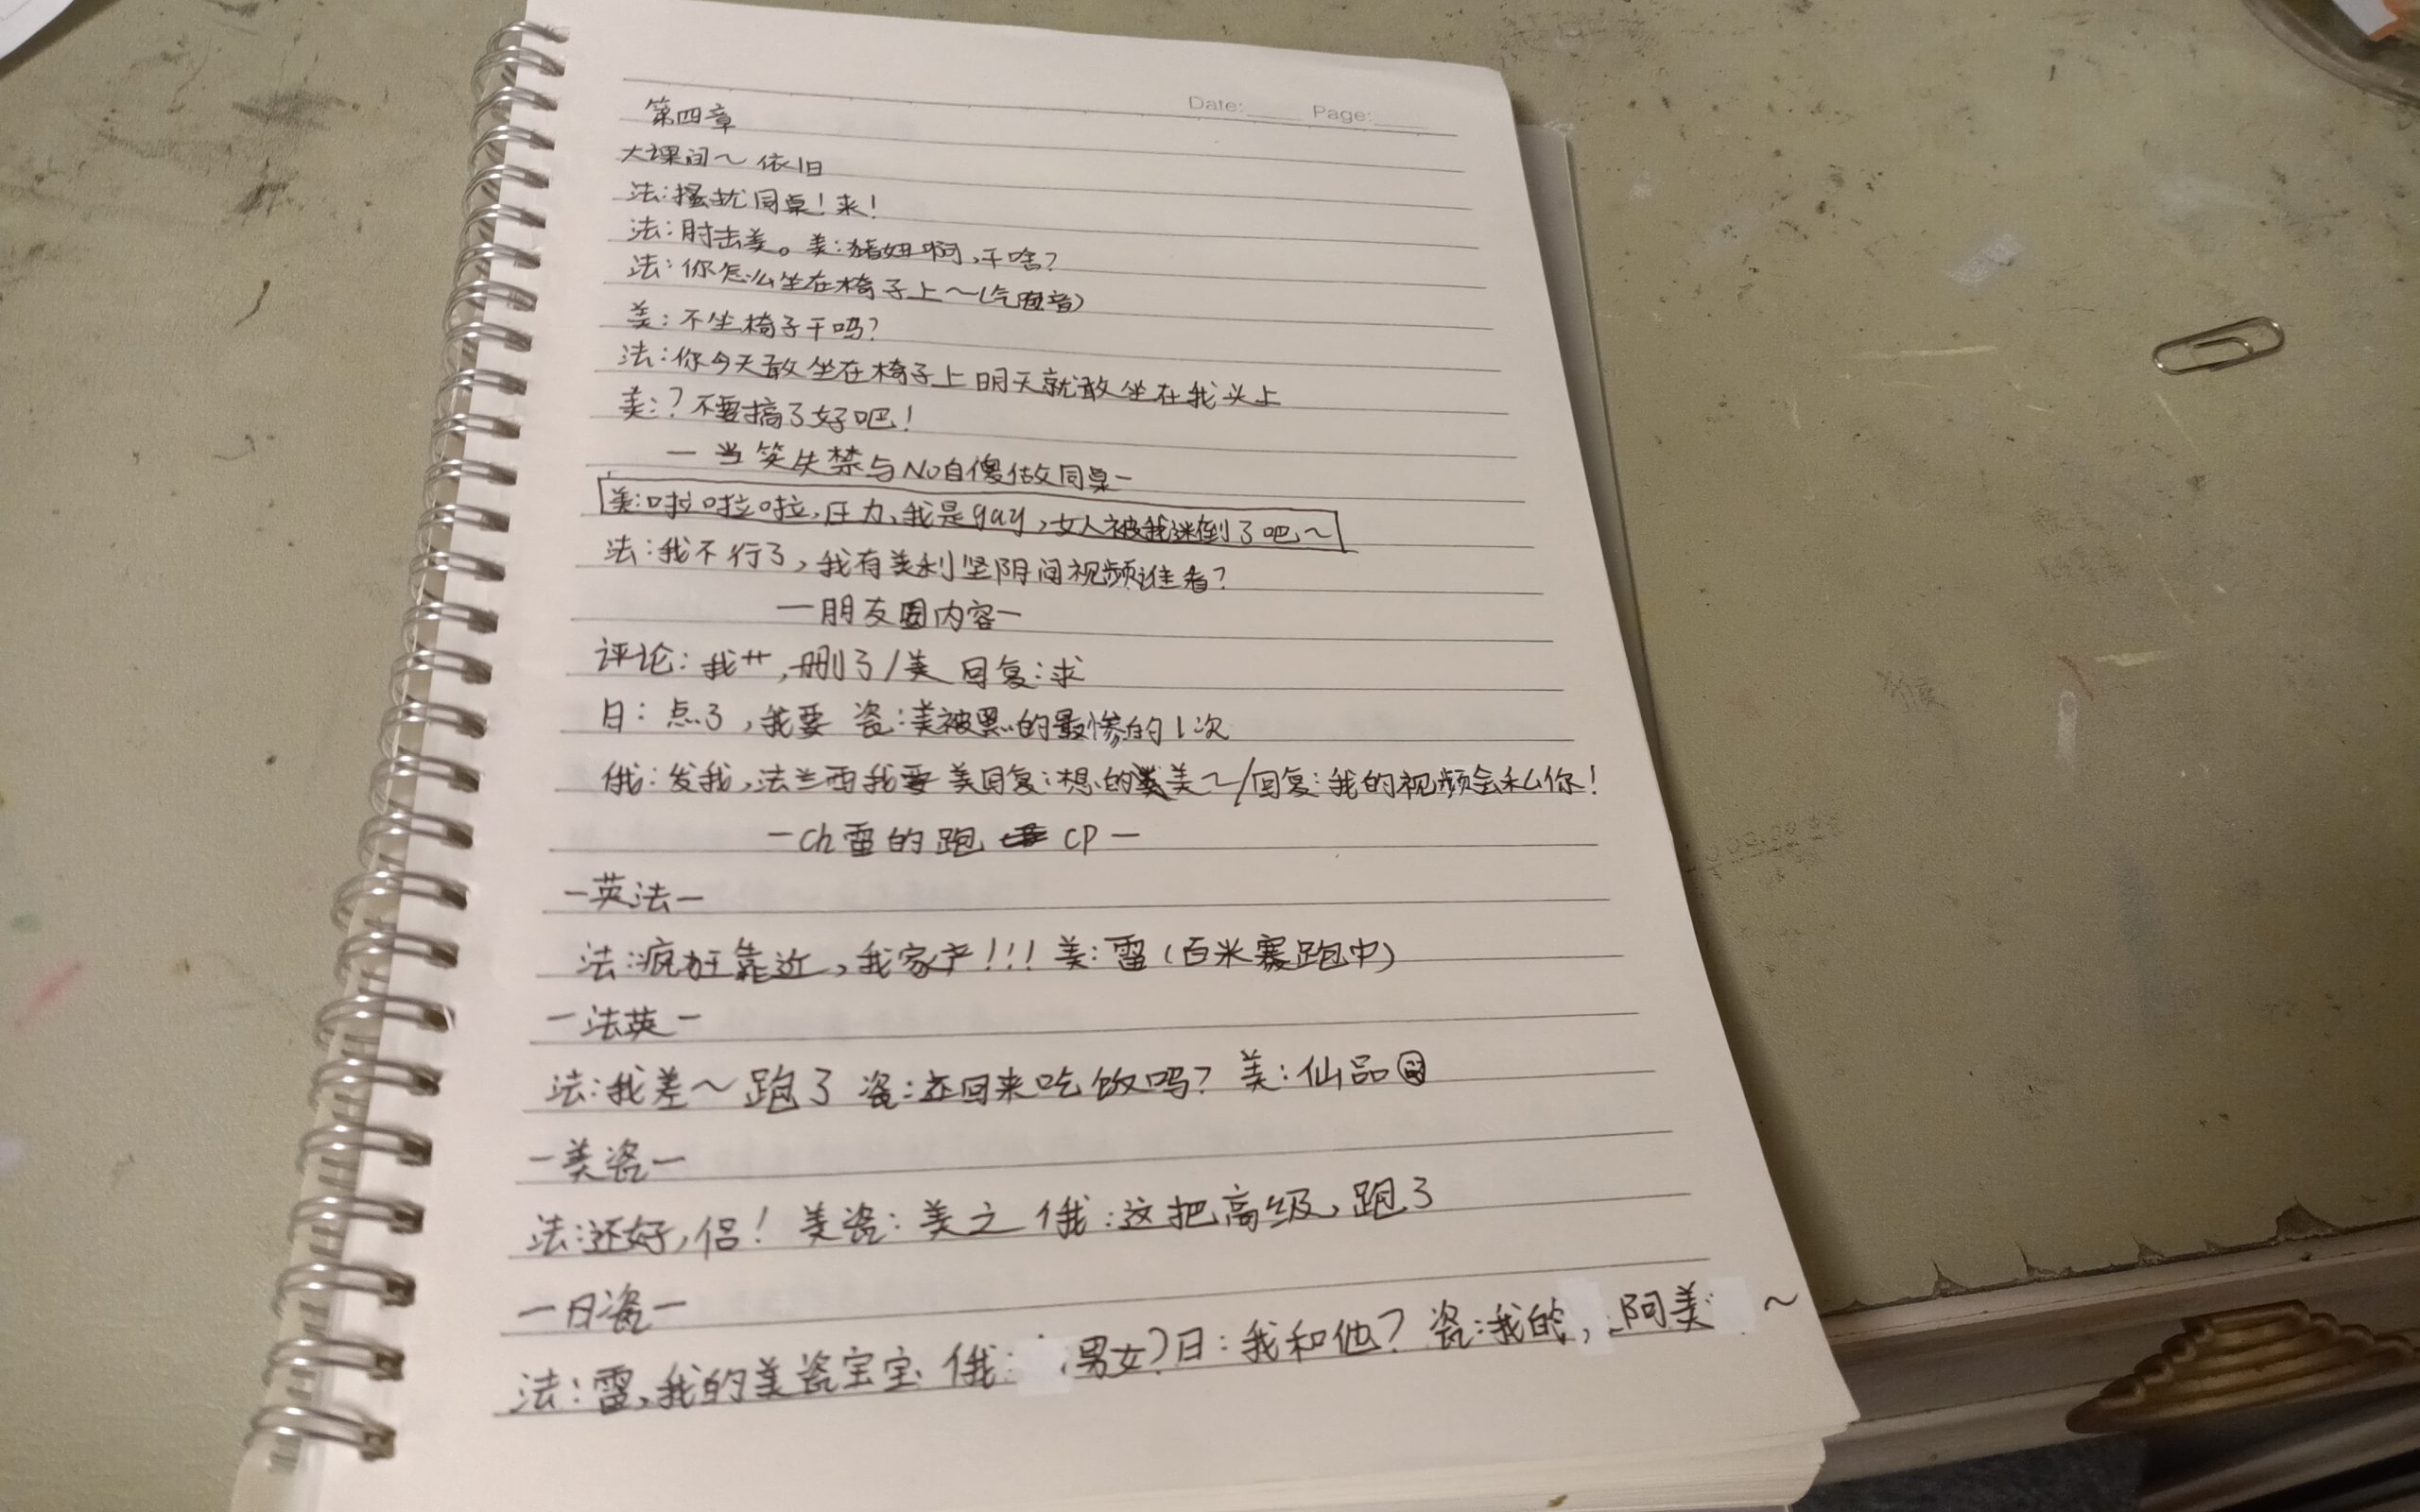 Date: Page:
第四章
大课间～依旧
法:搔扰同桌!来!
法:肘击美。美:猪妞啊,干啥?
法:你怎么坐在椅子上～(气泡音)
美:不坐椅子干吗?
法:你今天敢坐在椅子上明天就敢坐在我头上
美:?不要搞了好吧!
一当笑失禁与No自傻做同桌一
美:啦啦啦,压力,我是gay,女人被我迷倒了吧～
法:我不行了,我有美利坚阴间视频谁看?
一朋友圈内容一
评论:我艹,删了/美 回复:求
日:点了,我要 瓷:美被黑的最惨的1次
俄:发我,法兰西我要 美回复:想的美～/回复:我的视频会私你!
一ch雷的跑 cp一
一英法一
法:疯狂靠近,我家产!!! 美:雷(百米赛跑中)
一法英一
法:我差～跑了 瓷:还回来吃饭吗? 美:仙品
一美瓷一
法:还好,侣! 美瓷:美之 俄:这把高级,跑了
一日瓷一
法:雷,我的美瓷宝宝 俄: 男女?日:我和他? 瓷:我的,阿美～